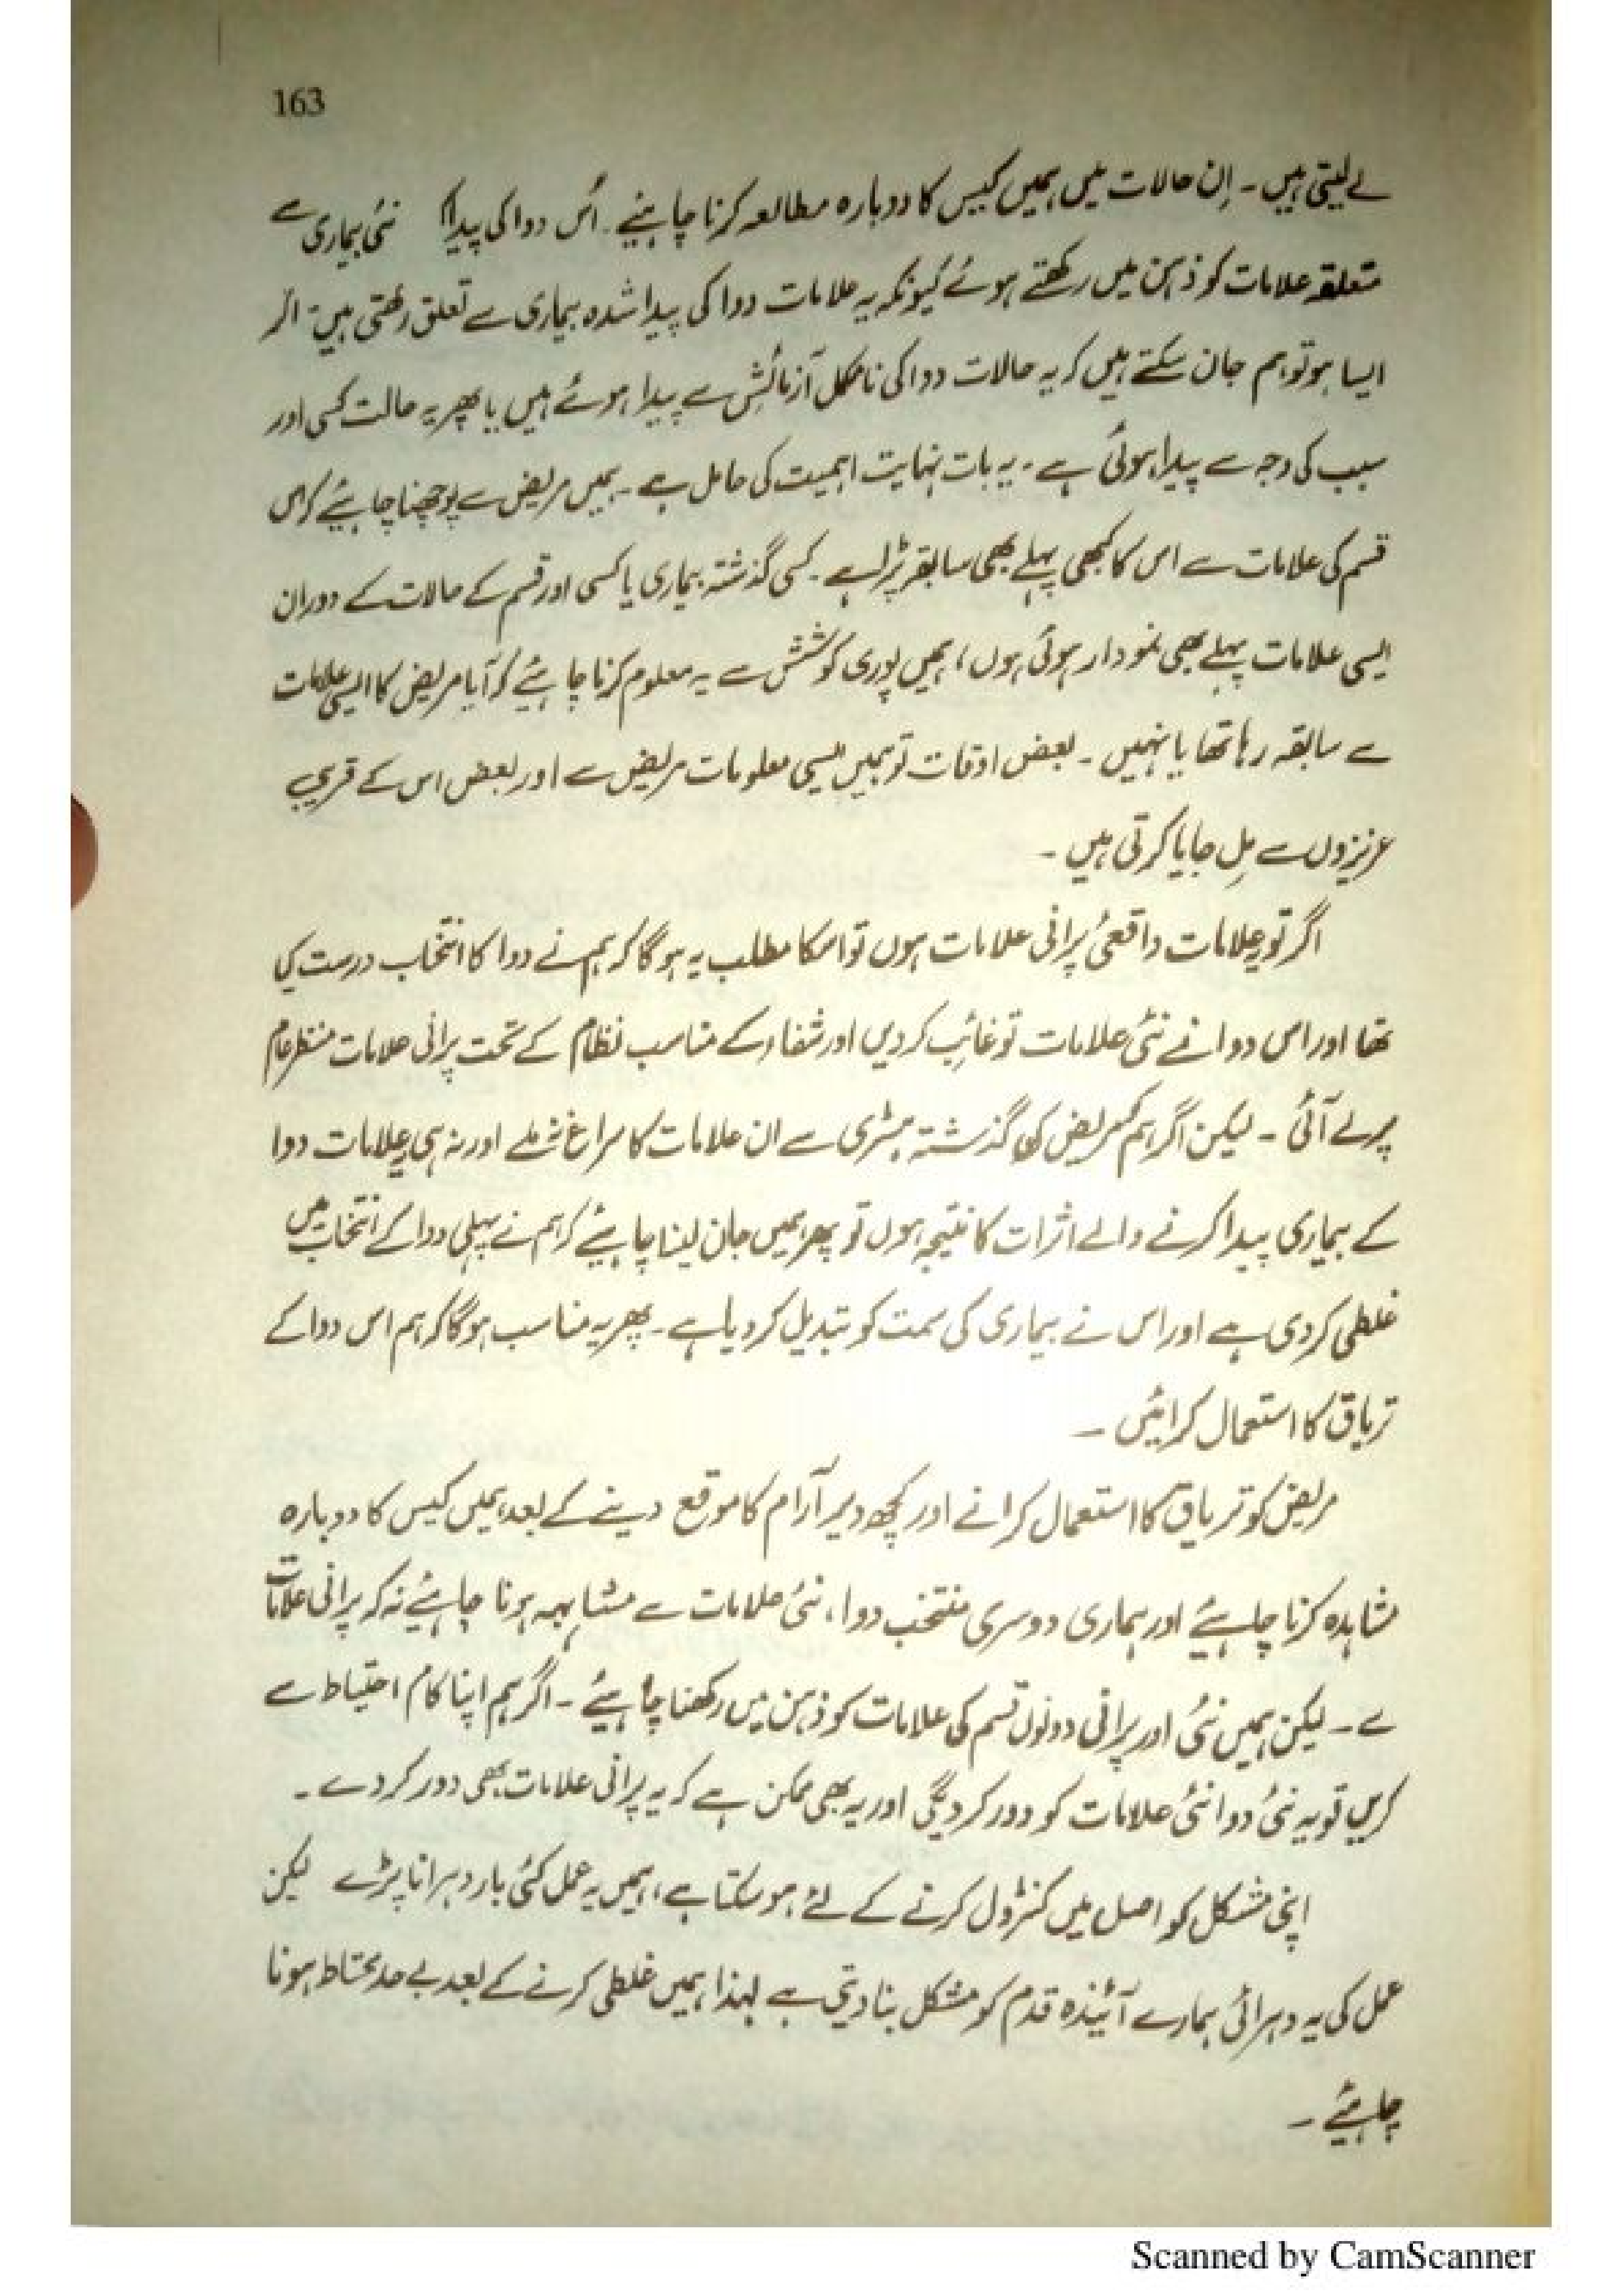 163
لے لیتی ہیں ۔ اِن حالات میں ہمیں کیس کا دوبارہ مطالعہ کرنا چاہئیے ۔ اُس دوا کی پیدا نئی بیماری سے
متعلقہ علامات کو ذہن میں رکھتے ہوئے کیونکہ یہ علامات دوا کی پیدا شدہ بیماری سے تعلق رکھتی ہیں ۔ اگر
ایسا ہو تو ہم جان سکتے ہیں کہ یہ حالات دوا کی نامکمل آزمائش سے پیدا ہوئے ہیں یا پھر یہ حالت کسی اور
سبب کی وجہ سے پیدا ہوئی ہے ۔ یہ بات نہایت اہمیت کی حامل ہے ۔ ہمیں مریض سے پوچھنا چاہئیے کہ اس
قسم کی علامات سے اس کا کبھی پہلے بھی سابقہ پڑا ہے ۔ کسی گذشتہ بیماری یا کسی اور قسم کے حالات کے دوران
ایسی علامات پہلے بھی نمودار ہوئی ہوں ، ہمیں پوری کوشش سے یہ معلوم کرنا چاہئیے کہ آیا مریض کا ایسی علامات
سے سابقہ رہا تھا یا نہیں ۔ بعض اوقات تو ہمیں ایسی معلومات مریض سے اور بعض اس کے قریبی
عزیزوں سے مِل جایا کرتی ہیں ۔
اگر تو یہ علامات واقعئی پرانی علامات ہوں تو اسکا مطلب یہ ہو گا کہ ہم نے دوا کا انتخاب درست کیا
تھا اور اس دوا نے نئی علامات تو غائب کر دیں اور شفاء کے مناسب نظام کے تحت پرانی علامات منظر عام
پر لے آئی ۔ لیکن اگر ہم کو مریض کی گذشتہ ہسٹری سے ان علامات کا سراغ نہ ملے اور نہ ہی یہ علامات دوا
کے بیماری پیدا کرنے والے اثرات کا نتیجہ ہوں تو پھر ہمیں جان لینا چاہئیے کہ ہم نے پہلی دوا کے انتخاب میں
غلطی کر دی ہے اور اس نے بیماری کی سمت کو تبدیل کر دیا ہے ۔ پھر یہ مناسب ہو گا کہ ہم اس دوا کے
تریاق کا استعمال کرائیں ۔
مریض کو تریاق کا استعمال کرانے اور کچھ دیر آرام کا موقع دینے کے بعد ہمیں کیس کا دوبارہ
مشاہدہ کرنا چاہئیے اور ہماری دوسری منتخب دوا ، نئی علامات سے مشابہہ ہونا چاہئیے نہ کہ پرانی علامات
سے ۔ لیکن ہمیں نئی اور پرانی دونوں قسم کی علامات کو ذہن میں رکھنا چاہئیے ۔ اگر ہم اپنا کام احتیاط سے
کریں تو یہ نئی دوا نئی علامات کو دور کر دیگی اور یہ بھی ممکن ہے کہ یہ پرانی علامات بھی دور کر دے ۔
اپنی مشکل کو اصل میں کنٹرول کرنے کے لئے ہو سکتا ہے ، ہمیں یہ عمل کئی بار دہرانا پڑے لیکن
عمل کی یہ دہرائی ہمارے آئیندہ قدم کو مشکل بنا دیتی ہے لہذا ہمیں غلطی کرنے کے بعد بے حد محتاط ہونا
چاہئیے ۔
Scanned by CamScanner